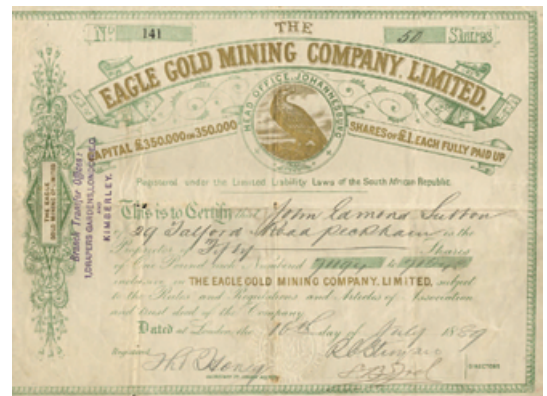 THE
No 141
50 Shares
EAGLE GOLD MINING COMPANY. LIMITED.
HEAD OFFICE JOHANNESBURG
CAPITAL £350.000 IN 350.000
SHARES OF £1. EACH FULLY PAID UP
Registered under the Limited Liability Laws of the South African Republic.
This is to Certify that John Edmond Sutton
of 29 Talford Road Peckham is the
Proprietor of Fifty Shares
of One Pound each Numbered to
inclusive in THE EAGLE GOLD MINING COMPANY. LIMITED, subject
to the Rules and Regulations and Articles of Association
and trust deed of the Company
Dated at London, the 16th day of July 1889
DIRECTORS
THE EAGLE
GOLD MINING CO. LIMITED
Branch Transfer Offices:
1, DRAPERS GARDENS, LONDON, E.C.
AND
KIMBERLEY.